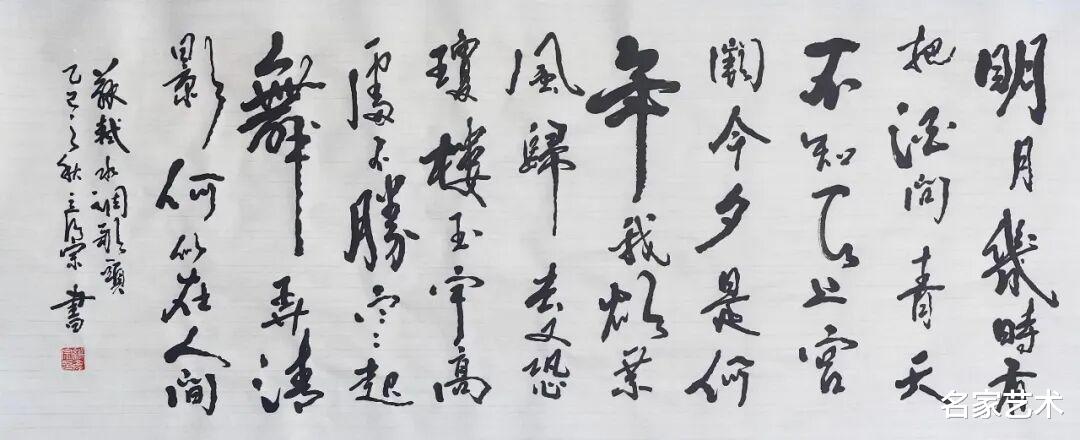 明月幾時有
把酒問青天
不知天上宮
闕今夕是何
年我欲乘
風歸去又恐
瓊樓玉宇高
處不勝寒起
舞弄清
影何似在人間
蘇軾水調歌頭
乙巳之秋宗書
名家艺术